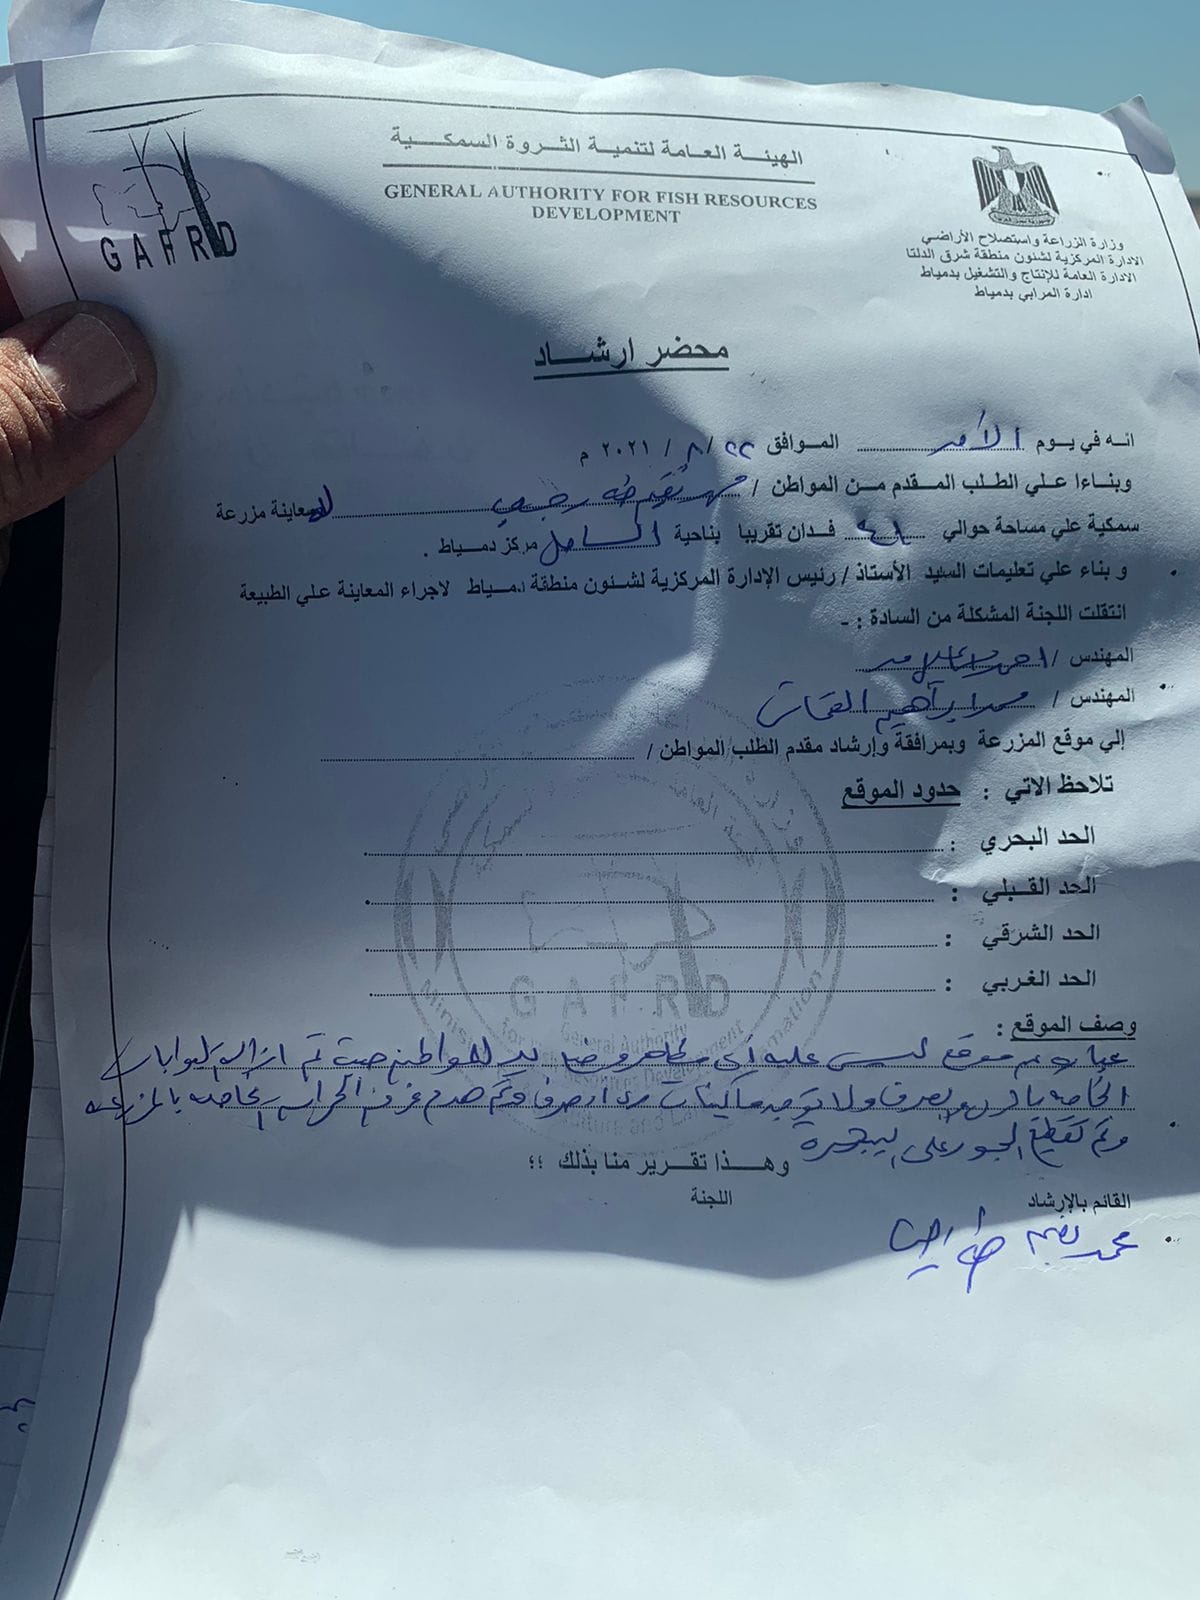 الهيئة العامة لتنمية الثروة السمكية
GENERAL AUTHORITY FOR FISH RESOURCES
DEVELOPMENT
GAFRD
وزارة الزراعة واستصلاح الأراضي
الادارة المركزية لشئون منطقة شرق الدلتا
الادارة العامة للإنتاج والتشغيل بدمياط
ادارة المرابي بدمياط
محضر ارشاد
انه في يوم الأحد الموافق ٢٢ / ٨ / ٢٠٢١ م
وبناءا علي الطلب المقدم من المواطن / محمد نعيم طه رجب لمعاينة مزرعة
سمكية علي مساحة حوالي فدان تقريبا بناحية الساحل مركز دمياط .
و بناء علي تعليمات السيد الأستاذ / رئيس الإدارة المركزية لشئون منطقة دمياط لاجراء المعاينة علي الطبيعة
انتقلت اللجنة المشكلة من السادة : -
المهندس / احمد
المهندس / محمد ابراهيم القماش
إلي موقع المزرعة وبمرافقة وإرشاد مقدم الطلب المواطن /
تلاحظ الاتي : حدود الموقع
الحد البحري :
الحد القبلي :
الحد الشرقي :
الحد الغربي :
وصف الموقع :
عباره عن موقع ليس عليه أى مظاهر وضع يد للمواطنين حيث تم ازالة البوابات
الخاصه بالرى والصرف ولا توجد ماكينات رى او صرف وتم هدم غرف الحراسه الخاصه بالمزرعه
وتم تقطيع الجسور على البحيره
وهذا تقرير منا بذلك ؛؛
القائم بالإرشاد
اللجنة
محمد نعيم طه رجب
GAFRD
General Authority